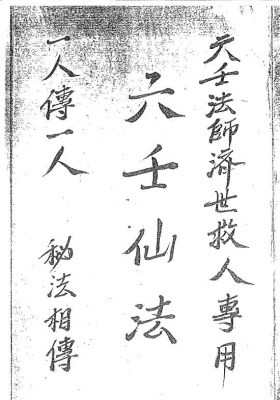 六壬法師濟世救人專用
六壬仙法
一人傳一人 秘法相傳